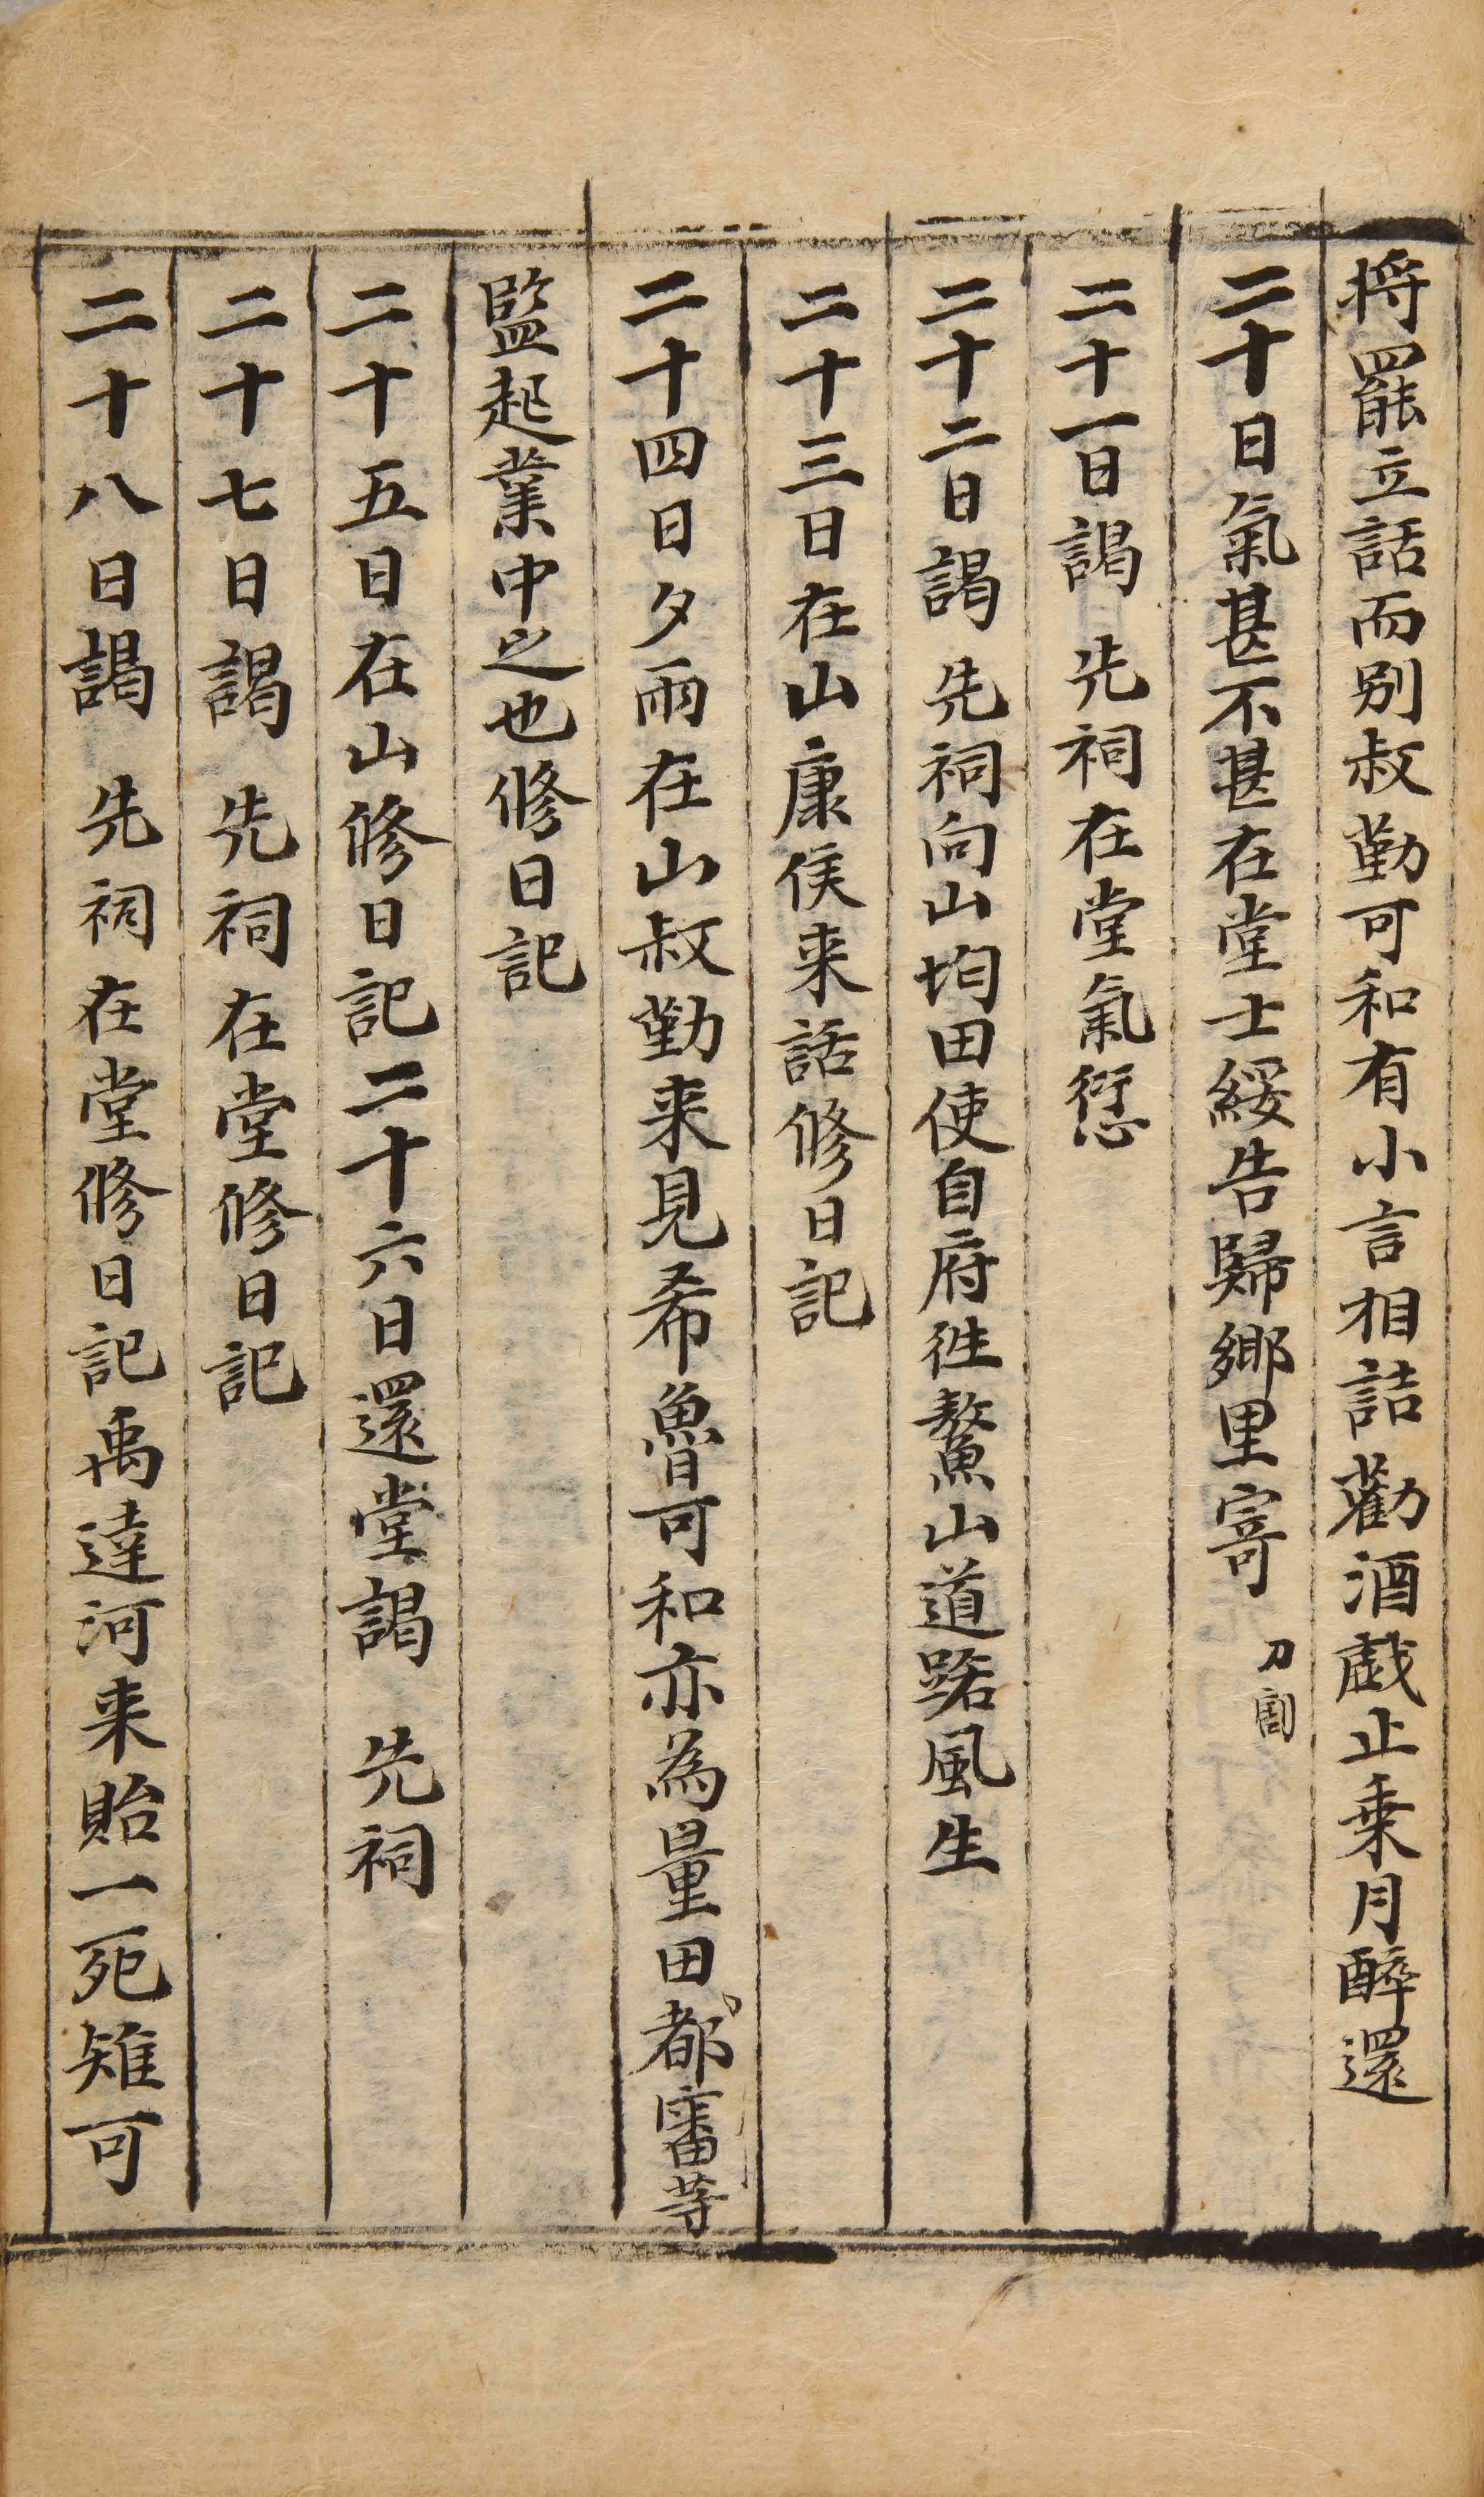 将罷立話而别叔勤可和有小言相詰勸酒戱止乗月醉還
二十日氣甚不甚在堂士綏告歸鄉里寄 刀
二十一日謁 先祠在堂氣愆
二十二日謁 先祠向山均田使自府徃鰲山道路風生
二十三日在山康侯来話修日記
二十四日夕雨在山叔勤来見希魯可和亦為量田都審等
監起業中之也修日記
二十五日在山修日記二十六日還堂謁 先祠
二十七日謁 先祠在堂修日記
二十八日謁 先祠在堂修日記禹達河来貽一死雉可